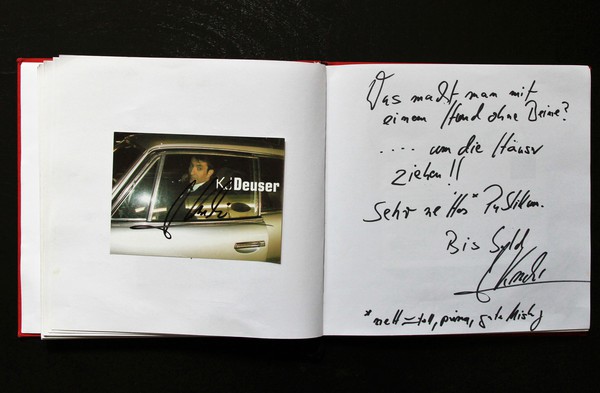 K.J. Deuser
Was macht man mit
einem Hund ohne Beine?
.... um die Häuser
ziehen!!
Sehr nettes* Publikum.
Bis bald
* nett = toll, prima, gute Mischg